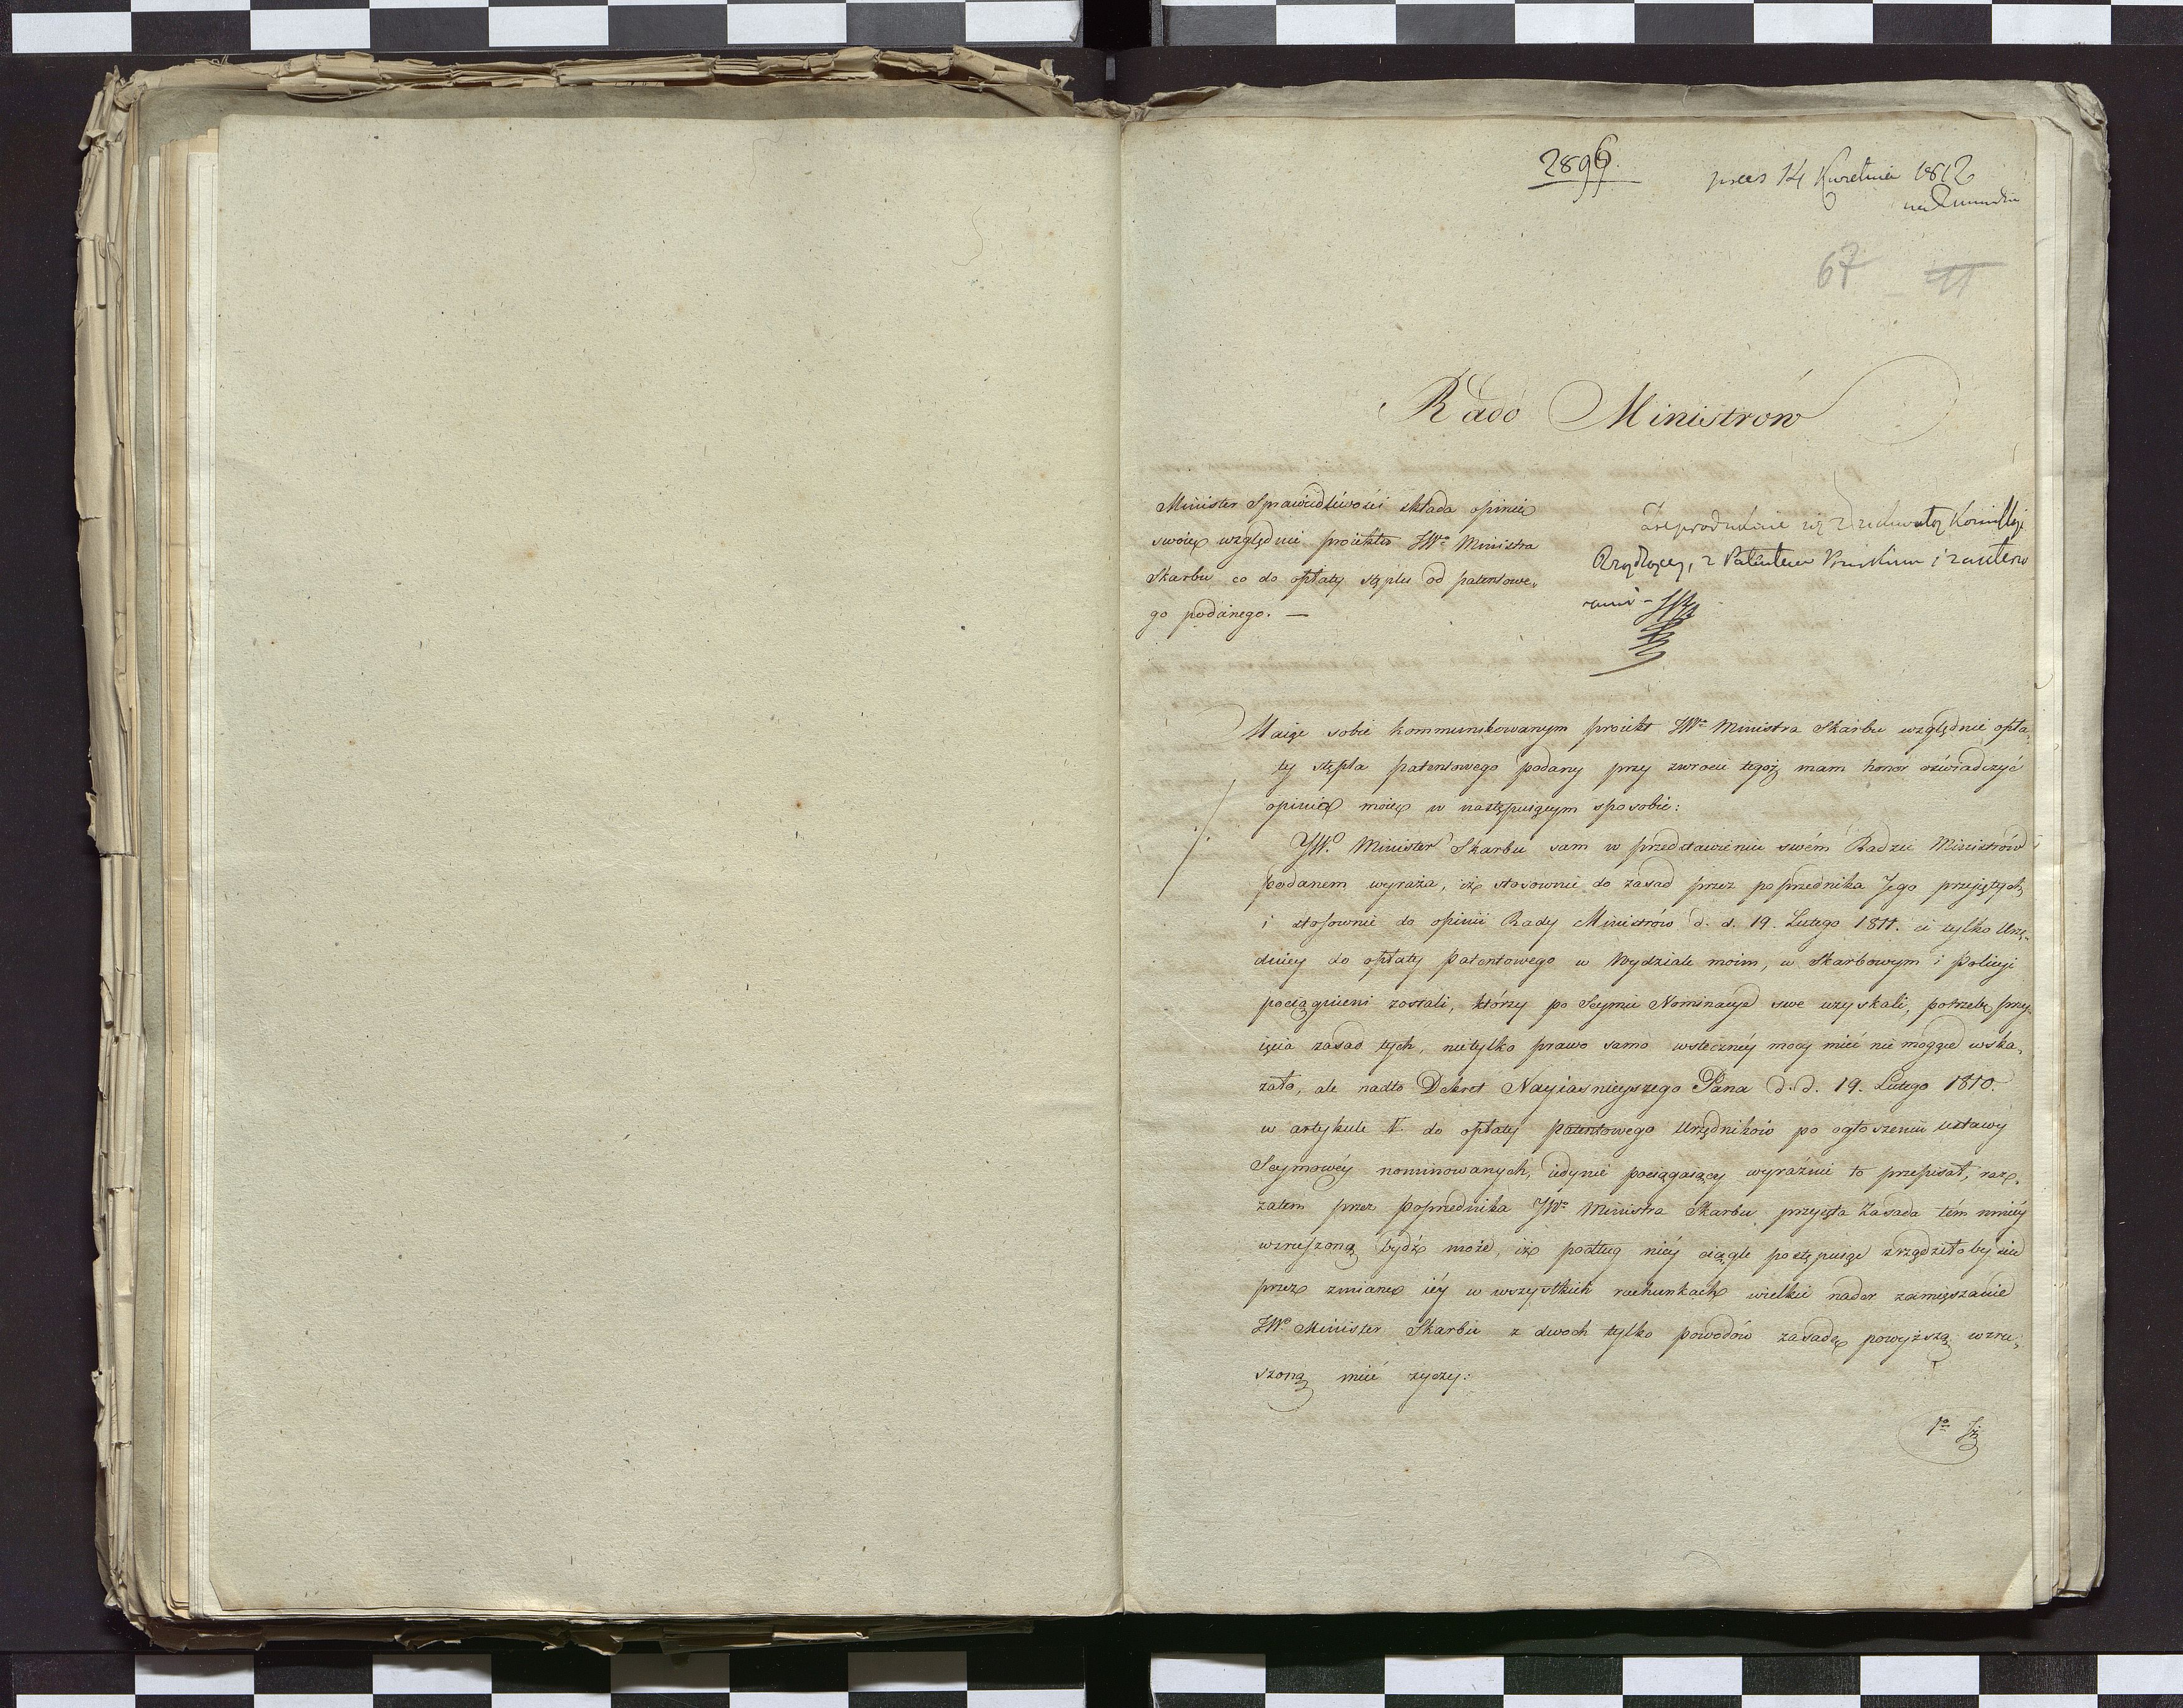 2896.
14 Kwietnia 1812
67 11
Rado Ministrów
Minister Sprawiedliwości składa opinię
swoię względnie proiektu JWo Ministra
Skarbu co do opłaty stęplu od patentowe„
go podanego. —
z Patentem Pruskim i
Maiąc sobie kommunikowanym proiekt JWo Ministra Skarbu względnie opła„
ty stępla patentowego podany przy zwrocie tegoż mam honor oświadczyć
opinię moię w następuiącym sposobie:
JWo. Minister Skarbu sam w przedstawieniu swém Radzie Ministrów
podanem wyraża, iż stosownie do zasad przez poprzednika Jego przyiętych
i stosownie do opinii Rady Ministrów d. d. 19. Lutego 1811. ci tylko Urzę„
dnicy do opłaty patentowego w Wydziale moim, w Skarbowym i Policyi
pociągnieni zostali, którzy po Seymie Nominacye swe uzyskali, potrzebę przy„
ięcia zasad tych, nietylko prawo samo wsteczney mocy mieć nie mogące wska„
zało, ale nadto Dekret Nayiaśnieyszego Pana d. d. 19. Lutego 1810.
w artykule V. do opłaty patentowego Urzędników po ogłoszeniu ustawy
Seymowéy nominowanych, iedynie pociągaiący wyraźnie to przepisał, raz
zatem przez poprzednika JWo Ministra Skarbu przyięta Zasada tém mniéy
wzruszoną bydź może, iż podług niéy ciągle postępuiąc zrządziłoby się
przez zmianę iéy w wszystkich rachunkach wielkie nader zamięszanie
JWo. Minister Skarbu z dwóch tylko powodów zasadę powyższą wzru„
szoną mieć życzy:
1o Iż